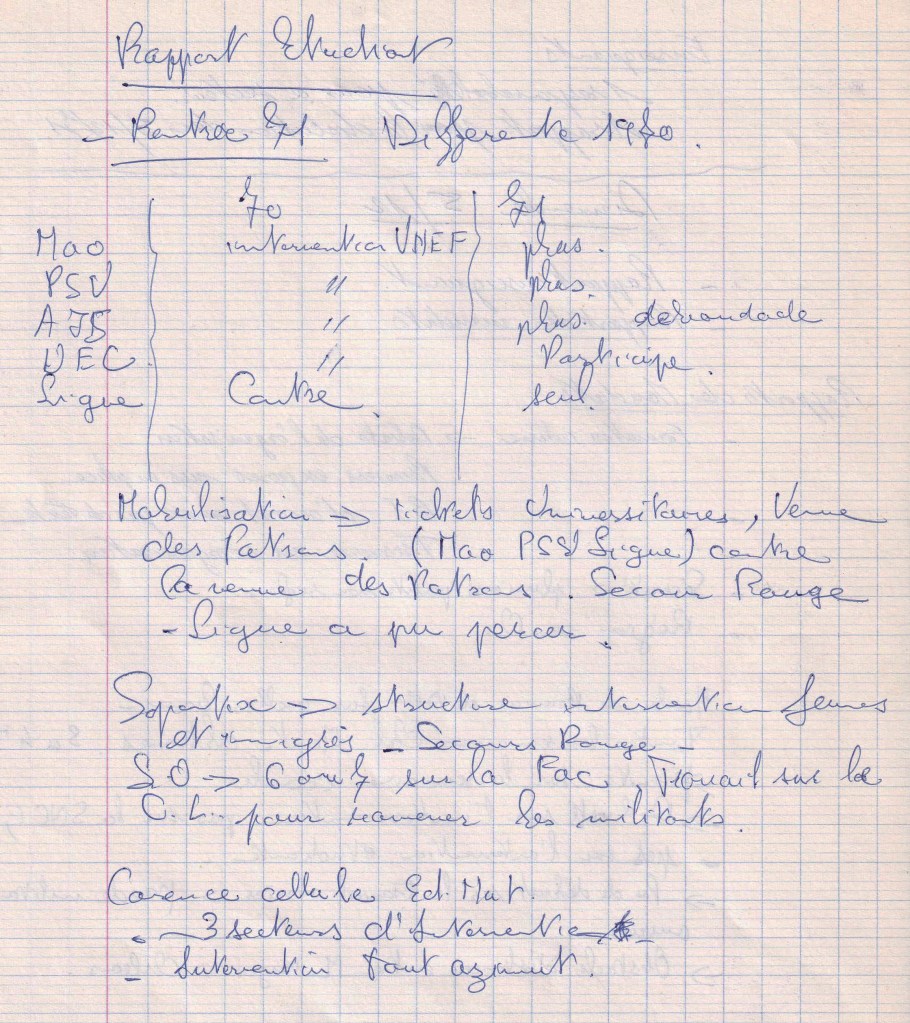 Rapport Etudiant
- Rentrée 71 Différente 1970.
70 71
Mao intervention UNEF plus.
PSU " plus.
AJS " plus. débandade
UEC " Participe.
Ligue Contre. seul.
Mobilisation → tickets Universitaires, Venue
des Patrons. (Mao PSU Ligue) contre
la venue des Patrons. Secour Rouge
- Ligue a pu percer.
→ structure intervention jeunes
et immigrés - Secours Rouge -
S.O → 6 ou 7 sur la Fac. Travail sur la
C.L. pour ramener les militants.
Carence cellule Ed. Mat.
- 3 secteurs d'Intervention
- Intervention tout azimut.